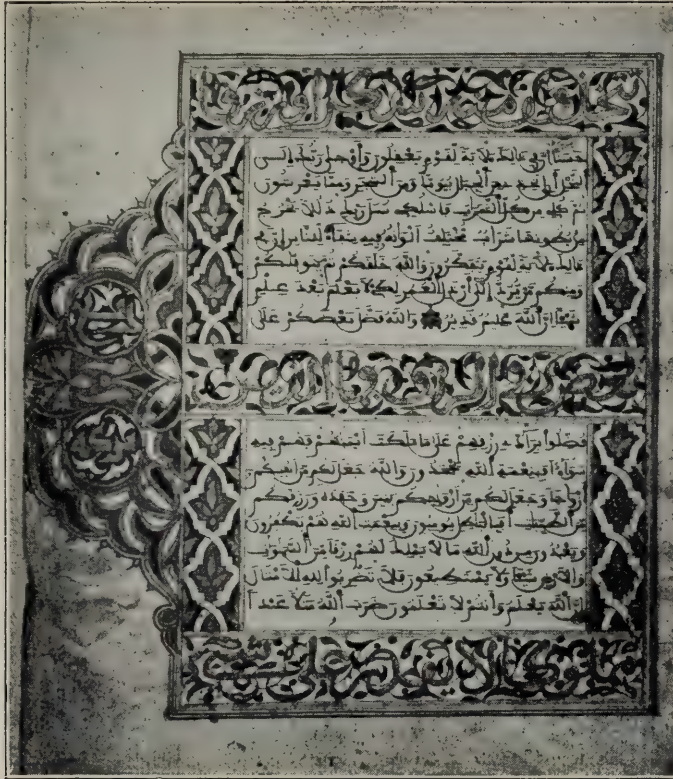 تتخذون منه سكرا ورزقا
حسنا ان في ذلك لآية لقوم يعقلون وأوحى ربك إلى
النحل أن اتخذي من الجبال بيوتا ومن الشجر ومما يعرشون
ثم كلي من كل الثمرات فاسلكي سبل ربك ذللا يخرج
من بطونها شراب مختلف ألوانه فيه شفاء للناس إن في
ذلك لآية لقوم يتفكرون والله خلقكم ثم يتوفيكم
ومنكم من يرد إلى أرذل العمر لكي لا يعلم بعد علم
شيئا إن الله عليم قدير والله فضل بعضكم على
بعض في الرزق فما الذين
فضلوا برادي رزقهم على ما ملكت أيمنهم فهم فيه
سواء أفبنعمة الله يجحدون والله جعل لكم من أنفسكم
أزواجا وجعل لكم من أزواجكم بنين وحفدة ورزقكم
من الطيبت أفبالبطل يومنون وبنعمت الله هم يكفرون
ويعبدون من دون الله ما لا يملك لهم رزقا من السموت
والأرض شيئا ولا يستطيعون فلا تضربوا لله الأمثال
إن الله يعلم وأنتم لا تعلمون ضرب الله مثلا عبدا
مملوكا لا يقدر على شيء